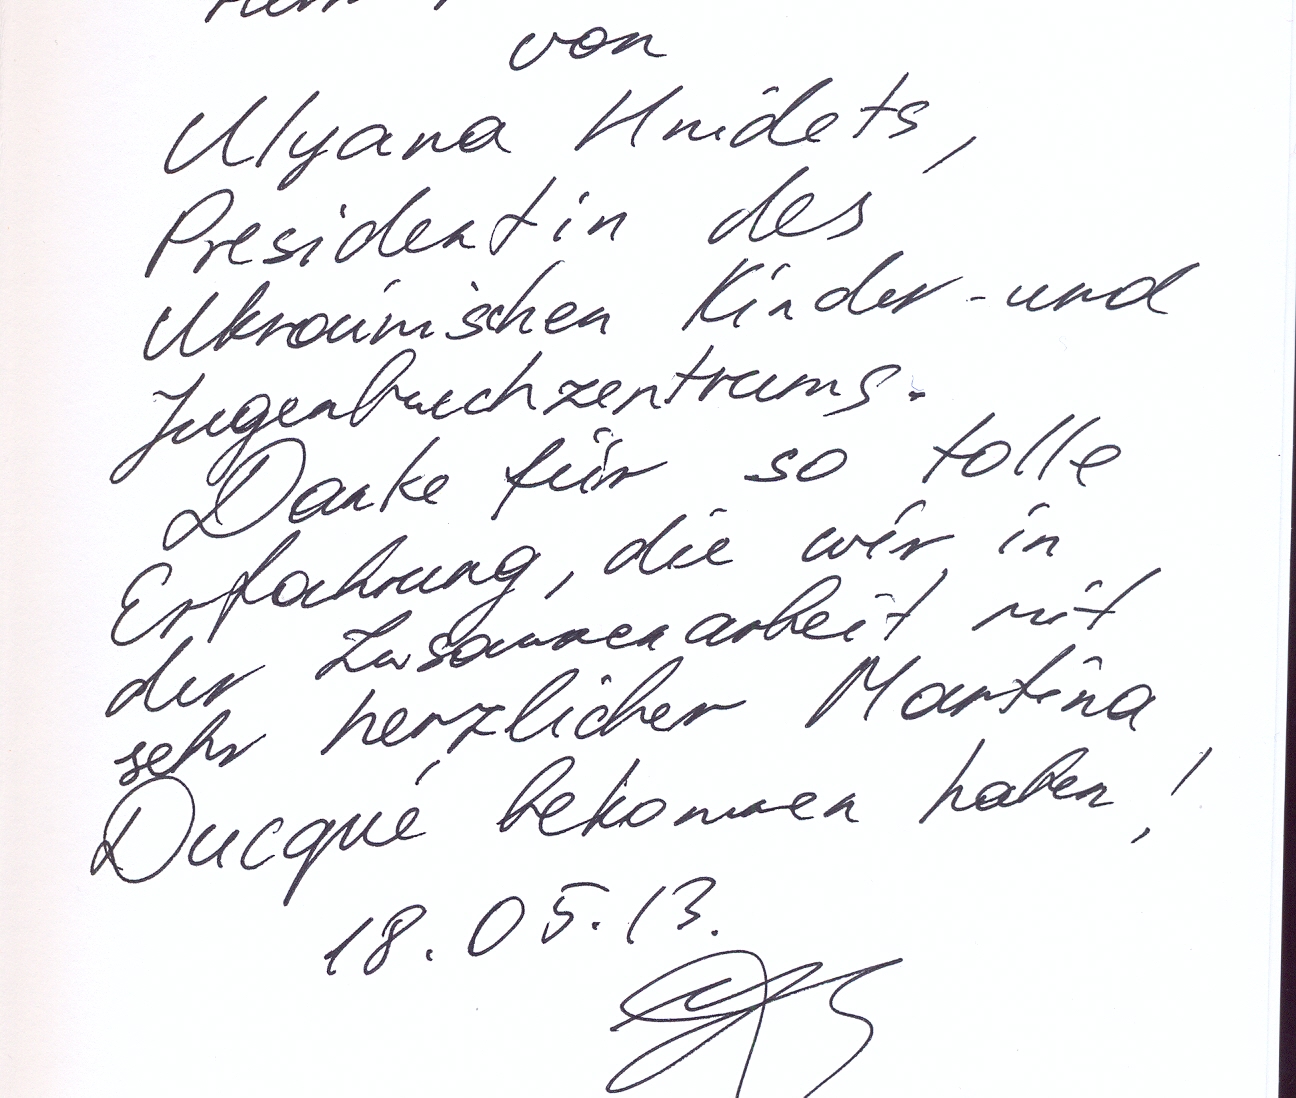 von
Ulyana Hnidets,
Presidentin des
Ukrainischen Kinder-und
Jugenbuchzentrums.
Danke für so tolle
Erfahrung, die wir in
der Zusammenarbeit mit
sehr herzlicher Martina
Ducqué bekommen haben!
18.05.13.